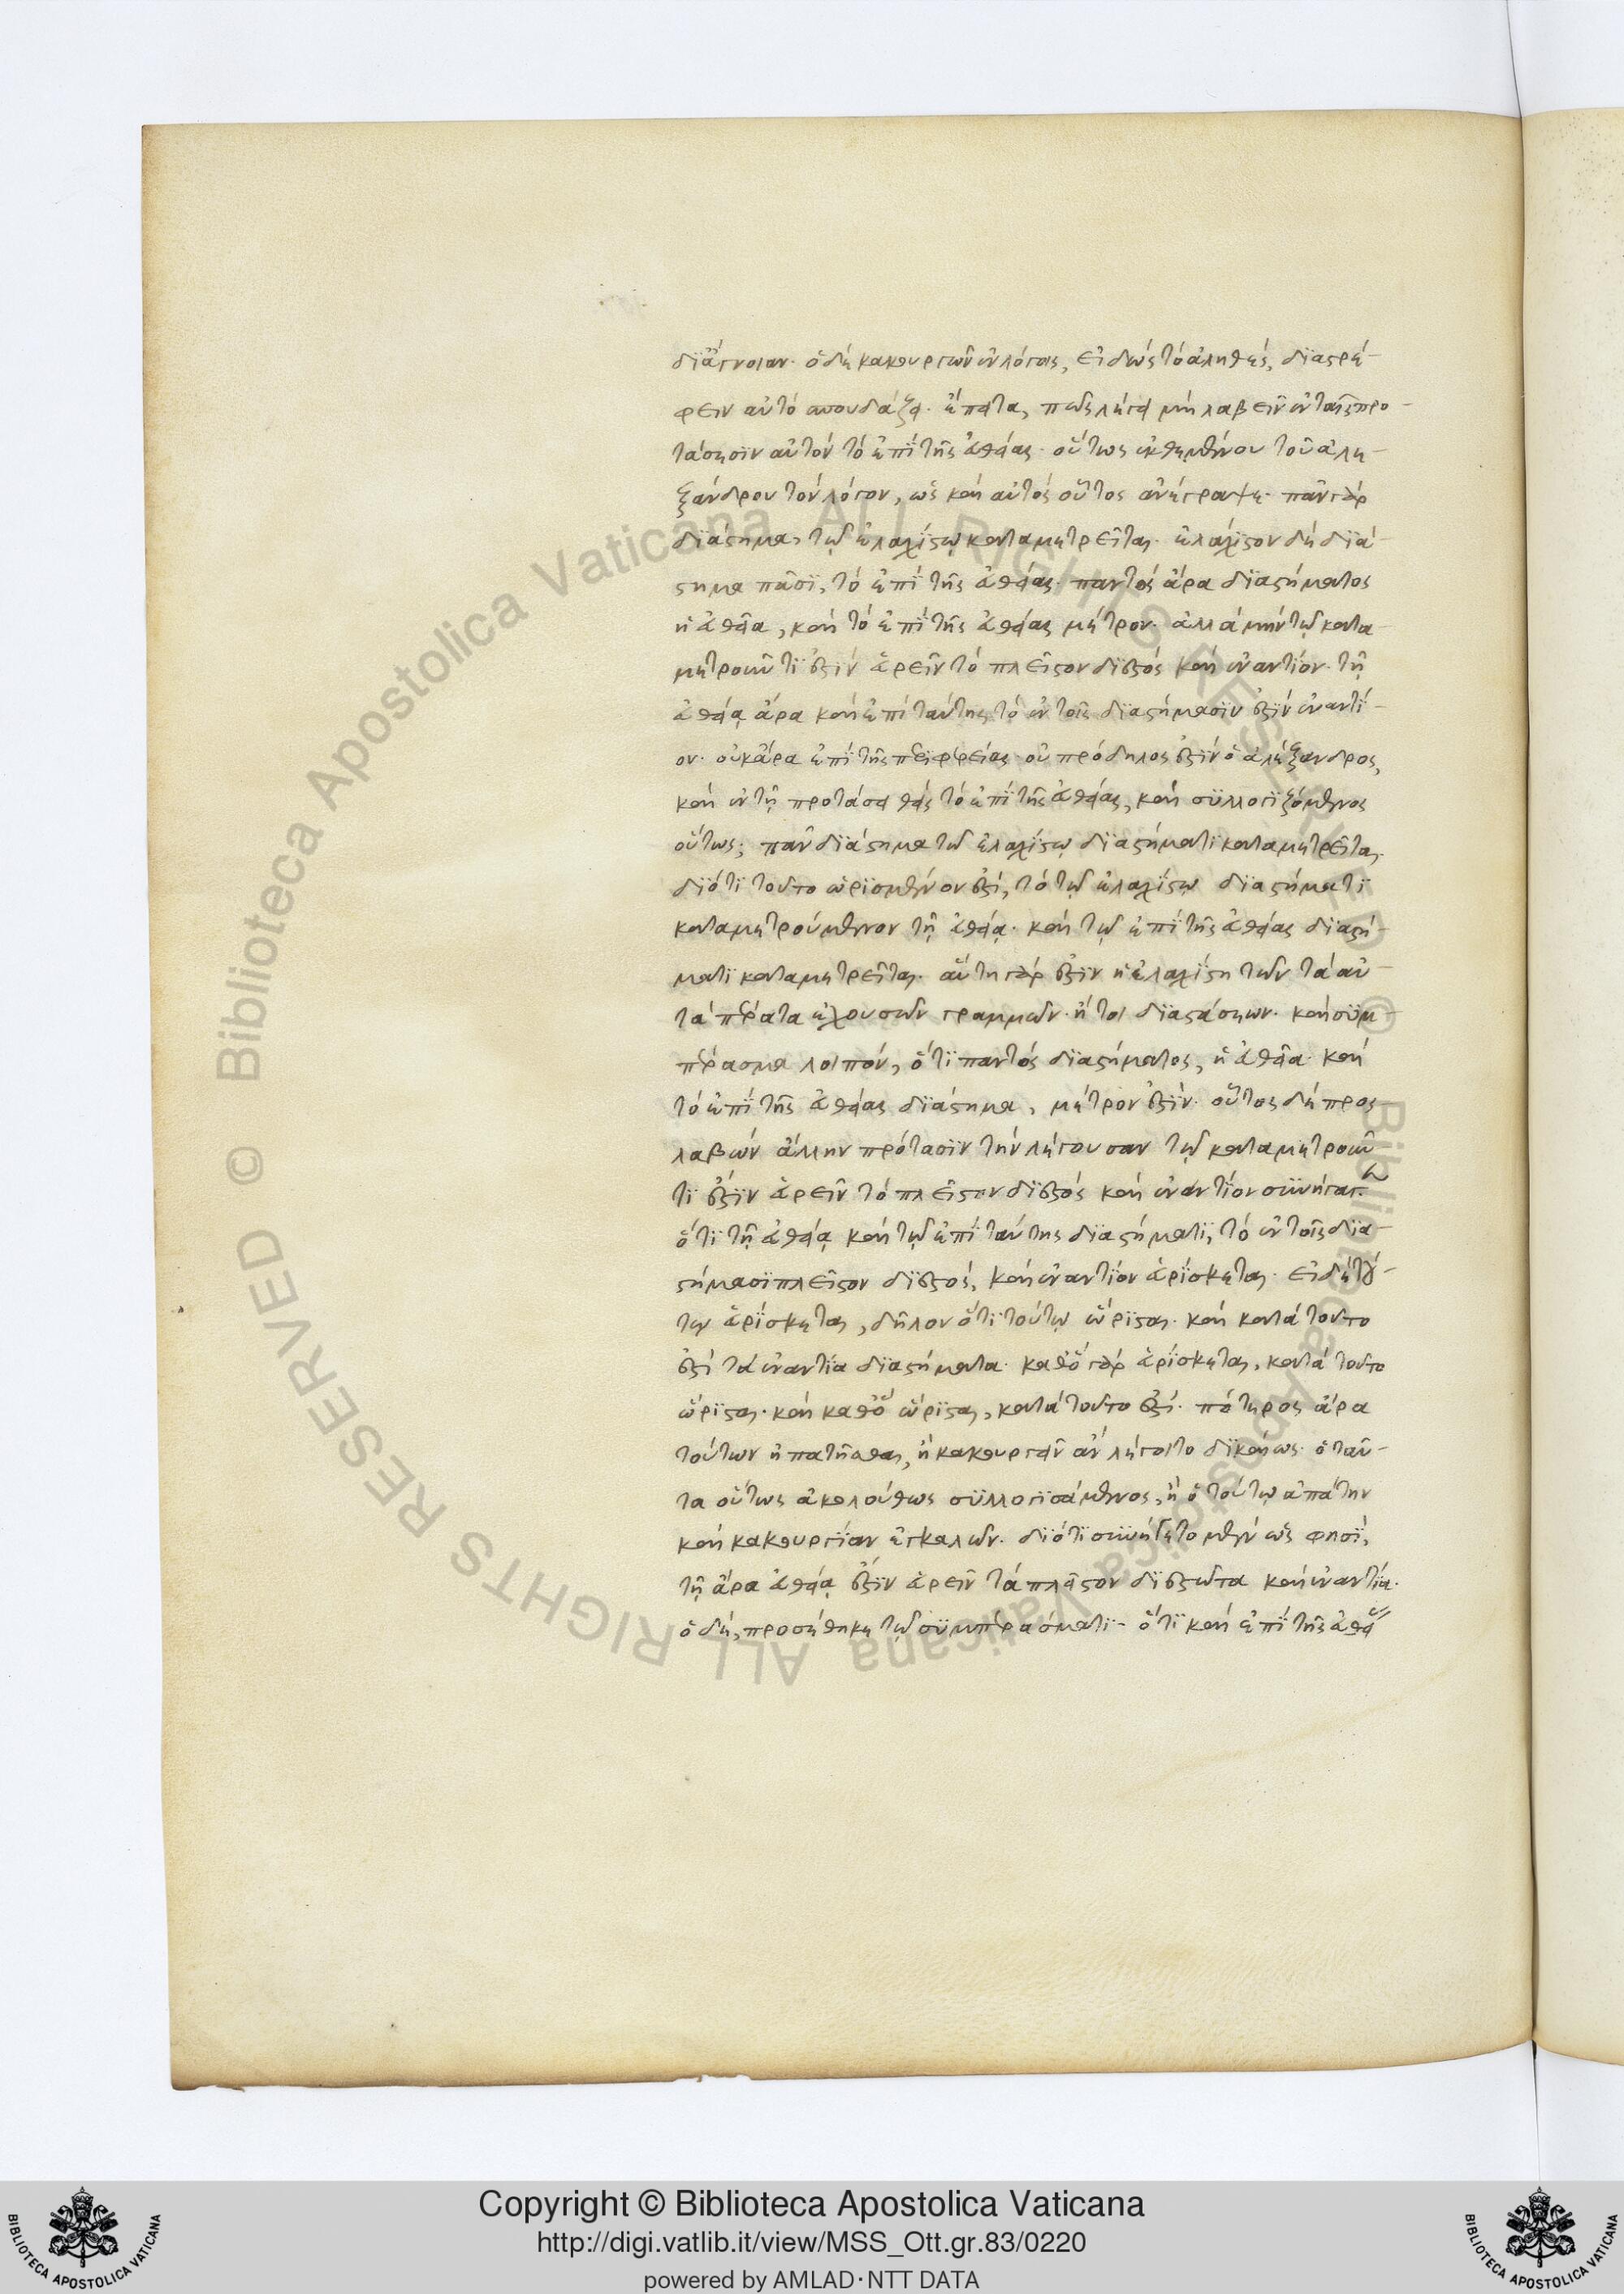 δϊ' ἄγνοιαν· ὁ δὲ κακουργῶν ἐν λόγοις, εἰδὼς τὸ ἀληθὲς, διαστρέ-
φειν αὐτὸ σπουδάζει· ἔπειτα, πῶς λέγει μὴ λαβεῖν ἐν ταῖς προ-
τάσεσϊν αὐτὸν τὸ ἐπὶ τῆς εὐθείας· οὕτως ἐκθεμένου τοῦ ἀλε-
ξάνδρου τὸν λόγον, ὡς καὶ αὐτὸς οὗτος ἀνέγραψε· πᾶν γὰρ
διάστημα, τῷ ἐλαχίστῳ καταμετρεῖται· ἐλάχιστον δὲ διά-
στημα πᾶσϊ, τὸ ἐπὶ τῆς εὐθείας· παντὸς ἄρα διαστήματος
ἡ εὐθεῖα, καὶ τὸ ἐπὶ τῆς εὐθείας μέτρον· ἀλλὰ μὴν τῷ κατα-
μετροῦντϊ ἐστὶν εὑρεῖν τὸ πλεῖστον διεστὸς καὶ ἐναντίον· τῇ
εὐθείᾳ ἄρα καὶ ἐπὶ ταύτης τὸ ἐν τοῖς διαστήμασϊν ἐστὶν ἐναντί-
ον· οὐκ ἄρα ἐπὶ τῆς περιφερείας· οὐ πρόδηλος ἐστὶν ὁ ἀλέξανδρος,
καὶ ἐν τῇ προτάσει θεὶς τὸ ἐπὶ τῆς εὐθείας, καὶ συλλογϊζόμενος
οὕτως; πᾶν διάστημα τῷ ἐλαχίστῳ διαστήματϊ καταμετρεῖται
διότϊ τοῦτο ὡρϊσμένον ἐστὶ, τὸ τῷ ἐλαχίστῳ διαστήματϊ
καταμετρούμενον τῇ εὐθείᾳ· καὶ τῷ ἐπὶ τῆς εὐθείας διαστή-
ματϊ καταμετρεῖται· αὕτη γὰρ ἐστὶν ἡ ἐλαχίστη τῶν τὰ αὐ-
τὰ πέρατα ἐχουσῶν γραμμῶν· ἤτοι διαστάσεων· καὶ σϋμ-
πέρασμα λοιπὸν, ὅτϊ παντὸς διαστήματος, ἡ εὐθεῖα· καὶ
τὸ ἐπὶ τῆς εὐθείας διάστημα, μέτρον ἐστὶν· οὗτος δὲ προς-
λαβὼν ἄλλην πρότασϊν τὴν λέγουσαν τῷ καταμετροῦν
τϊ ἐστὶν εὑρεῖν τὸ πλεῖστον διεστὸς καὶ ἐναντίον συνήγαγεν
ὅτϊ τῇ εὐθείᾳ καὶ τῷ ἐπὶ ταύτης διαστήματϊ, τὸ ἐν τοῖς δϊα-
στήμασϊ πλεῖστον διεστὸς, καὶ ἐναντίον εὑρίσκεται· εἰ δὲ τού-
τῳ εὑρίσκεται, δῆλον ὅτϊ τούτῳ ὥρισται· καὶ κατὰ τοῦτο
ἐστὶ τὰ ἐναντία διαστήματα· καθὸ γὰρ εὑρίσκεται, κατὰ τοῦτο
ὥρισται· καὶ καθὸ ὥρισται, κατὰ τοῦτο ἐστί· πότερος ἄρα
τούτων ἠπατῆσθαι, ἢ κακουργεῖν ἂν λέγοιτο δικαίως· ὁ ταῦ-
τα οὕτως ἀκολούθως συλλογϊσάμενος, ἢ ὁ τούτῳ ἀπάτην
καὶ κακουργίαν ἐγκαλῶν· διότϊ συνήγετο μὲν ὥς φησϊ,
τῇ ἄρα εὐθείᾳ ἐστὶν εὑρεῖν τὰ πλεῖστον διεστῶτα καὶ ἐναντία·
ὁ δὲ, προσέθηκε τῷ σϋμπεράσματϊ- ὅτϊ καὶ ἐπὶ τῆς εὐθεί
Copyright © Biblioteca Apostolica Vaticana
http://digi.vatlib.it/view/MSS_Ott.gr.83/0220
powered by AMLAD·NTT DATA